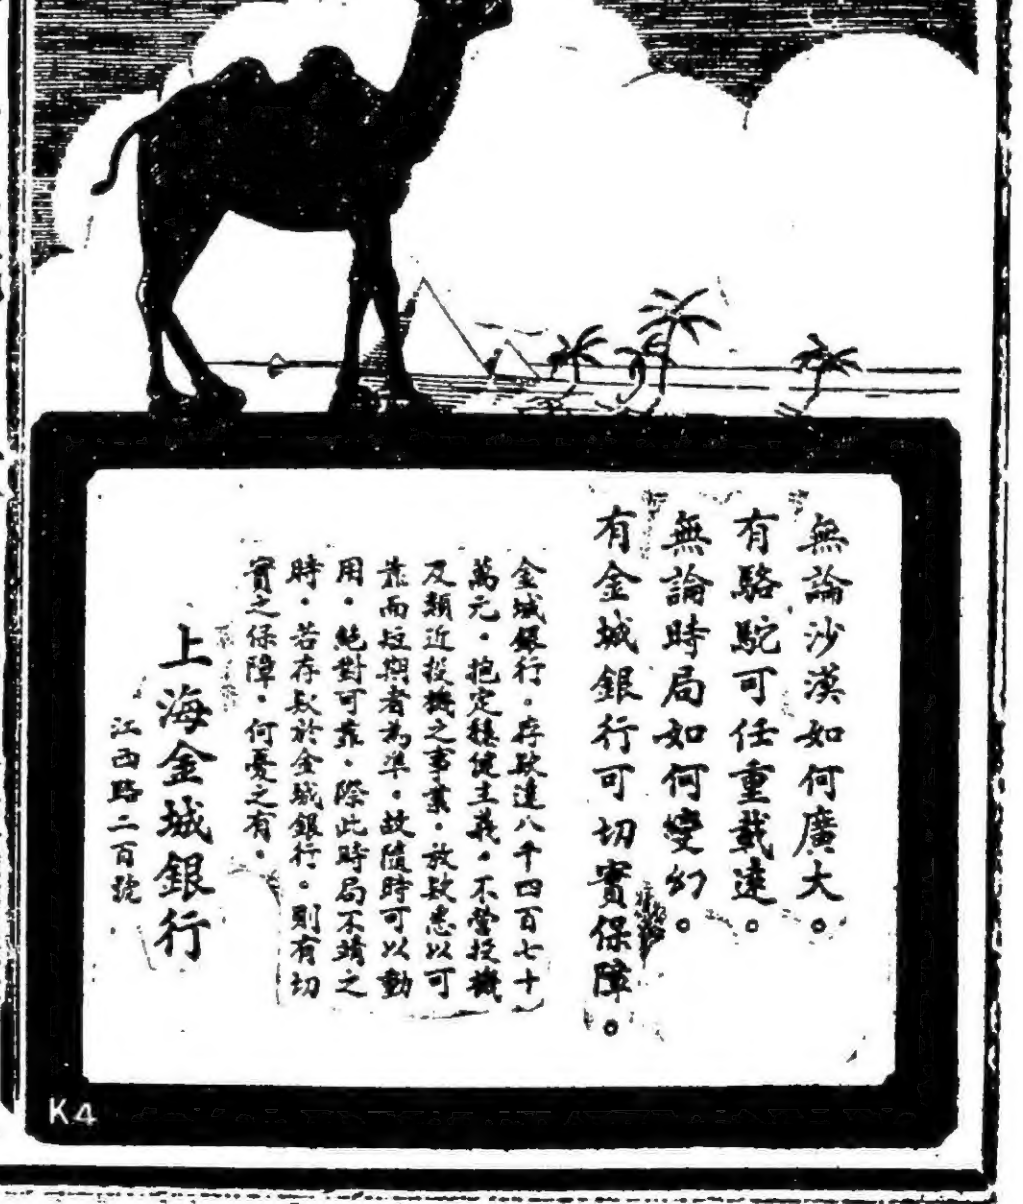 無論沙漠如何廣大。
有駱駝可任重載遠。
無論時局如何變幻。
有金城銀行可切實保障。
金城銀行。存款達八千四百七十
萬元。抱定穩健主義。不營投機
及類近投機之事業。放款悉以可
靠而短期者為準。故隨時可以動
用。絕對可靠。際此時局不靖之
時。若存款於金城銀行。則有切
實之保障。何憂之有。
上海金城銀行
江西路二百號
K4